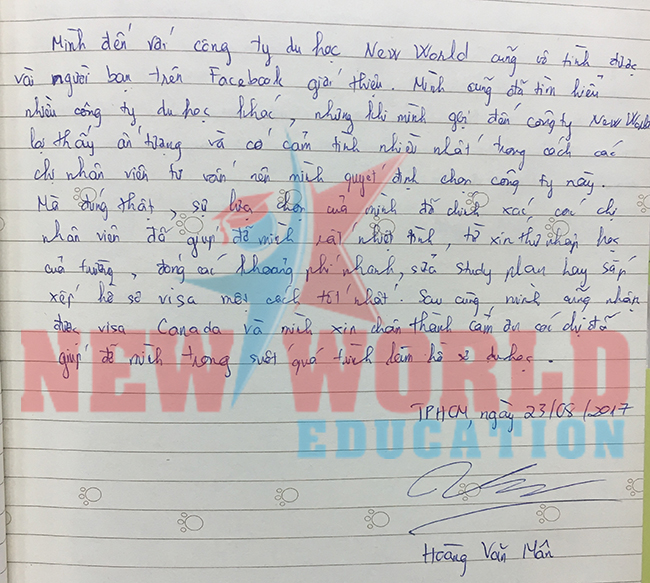 Mình đến với công ty du học New World cũng vô tình được
vài người bạn trên Facebook giới thiệu. Mình cũng đã tìm hiểu
nhiều công ty du học khác, nhưng khi mình gọi đến công ty New World
lại thấy ấn tượng và có cảm tình nhiều nhất trong cách các
chị nhân viên tư vấn nên mình quyết định chọn công ty này.
Mà đúng thật, sự lựa chọn của mình đã chính xác, các chị
nhân viên đã giúp đỡ mình rất nhiệt tình, từ xin thư nhập học
của trường, đóng các khoảng phí nhanh, sửa study plan hay sắp
xếp hồ sơ visa một cách tốt nhất. Sau cùng mình cũng nhận
được visa Canada và mình xin chân thành cảm ơn các chị đã
giúp đỡ mình trong suốt quá trình làm hồ sơ du học.
NEW WORLD
EDUCATION
TPHCM, ngày 23/08/2017
Hoàng Văn Mân